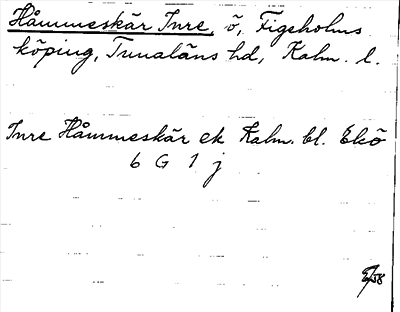 Håmmeskär Inre, ö, Figeholms
köping, Tunaläns hd, Kalm. l.
Inre Håmmeskär ek Kalm. bl. Ekö
6 G 1 j